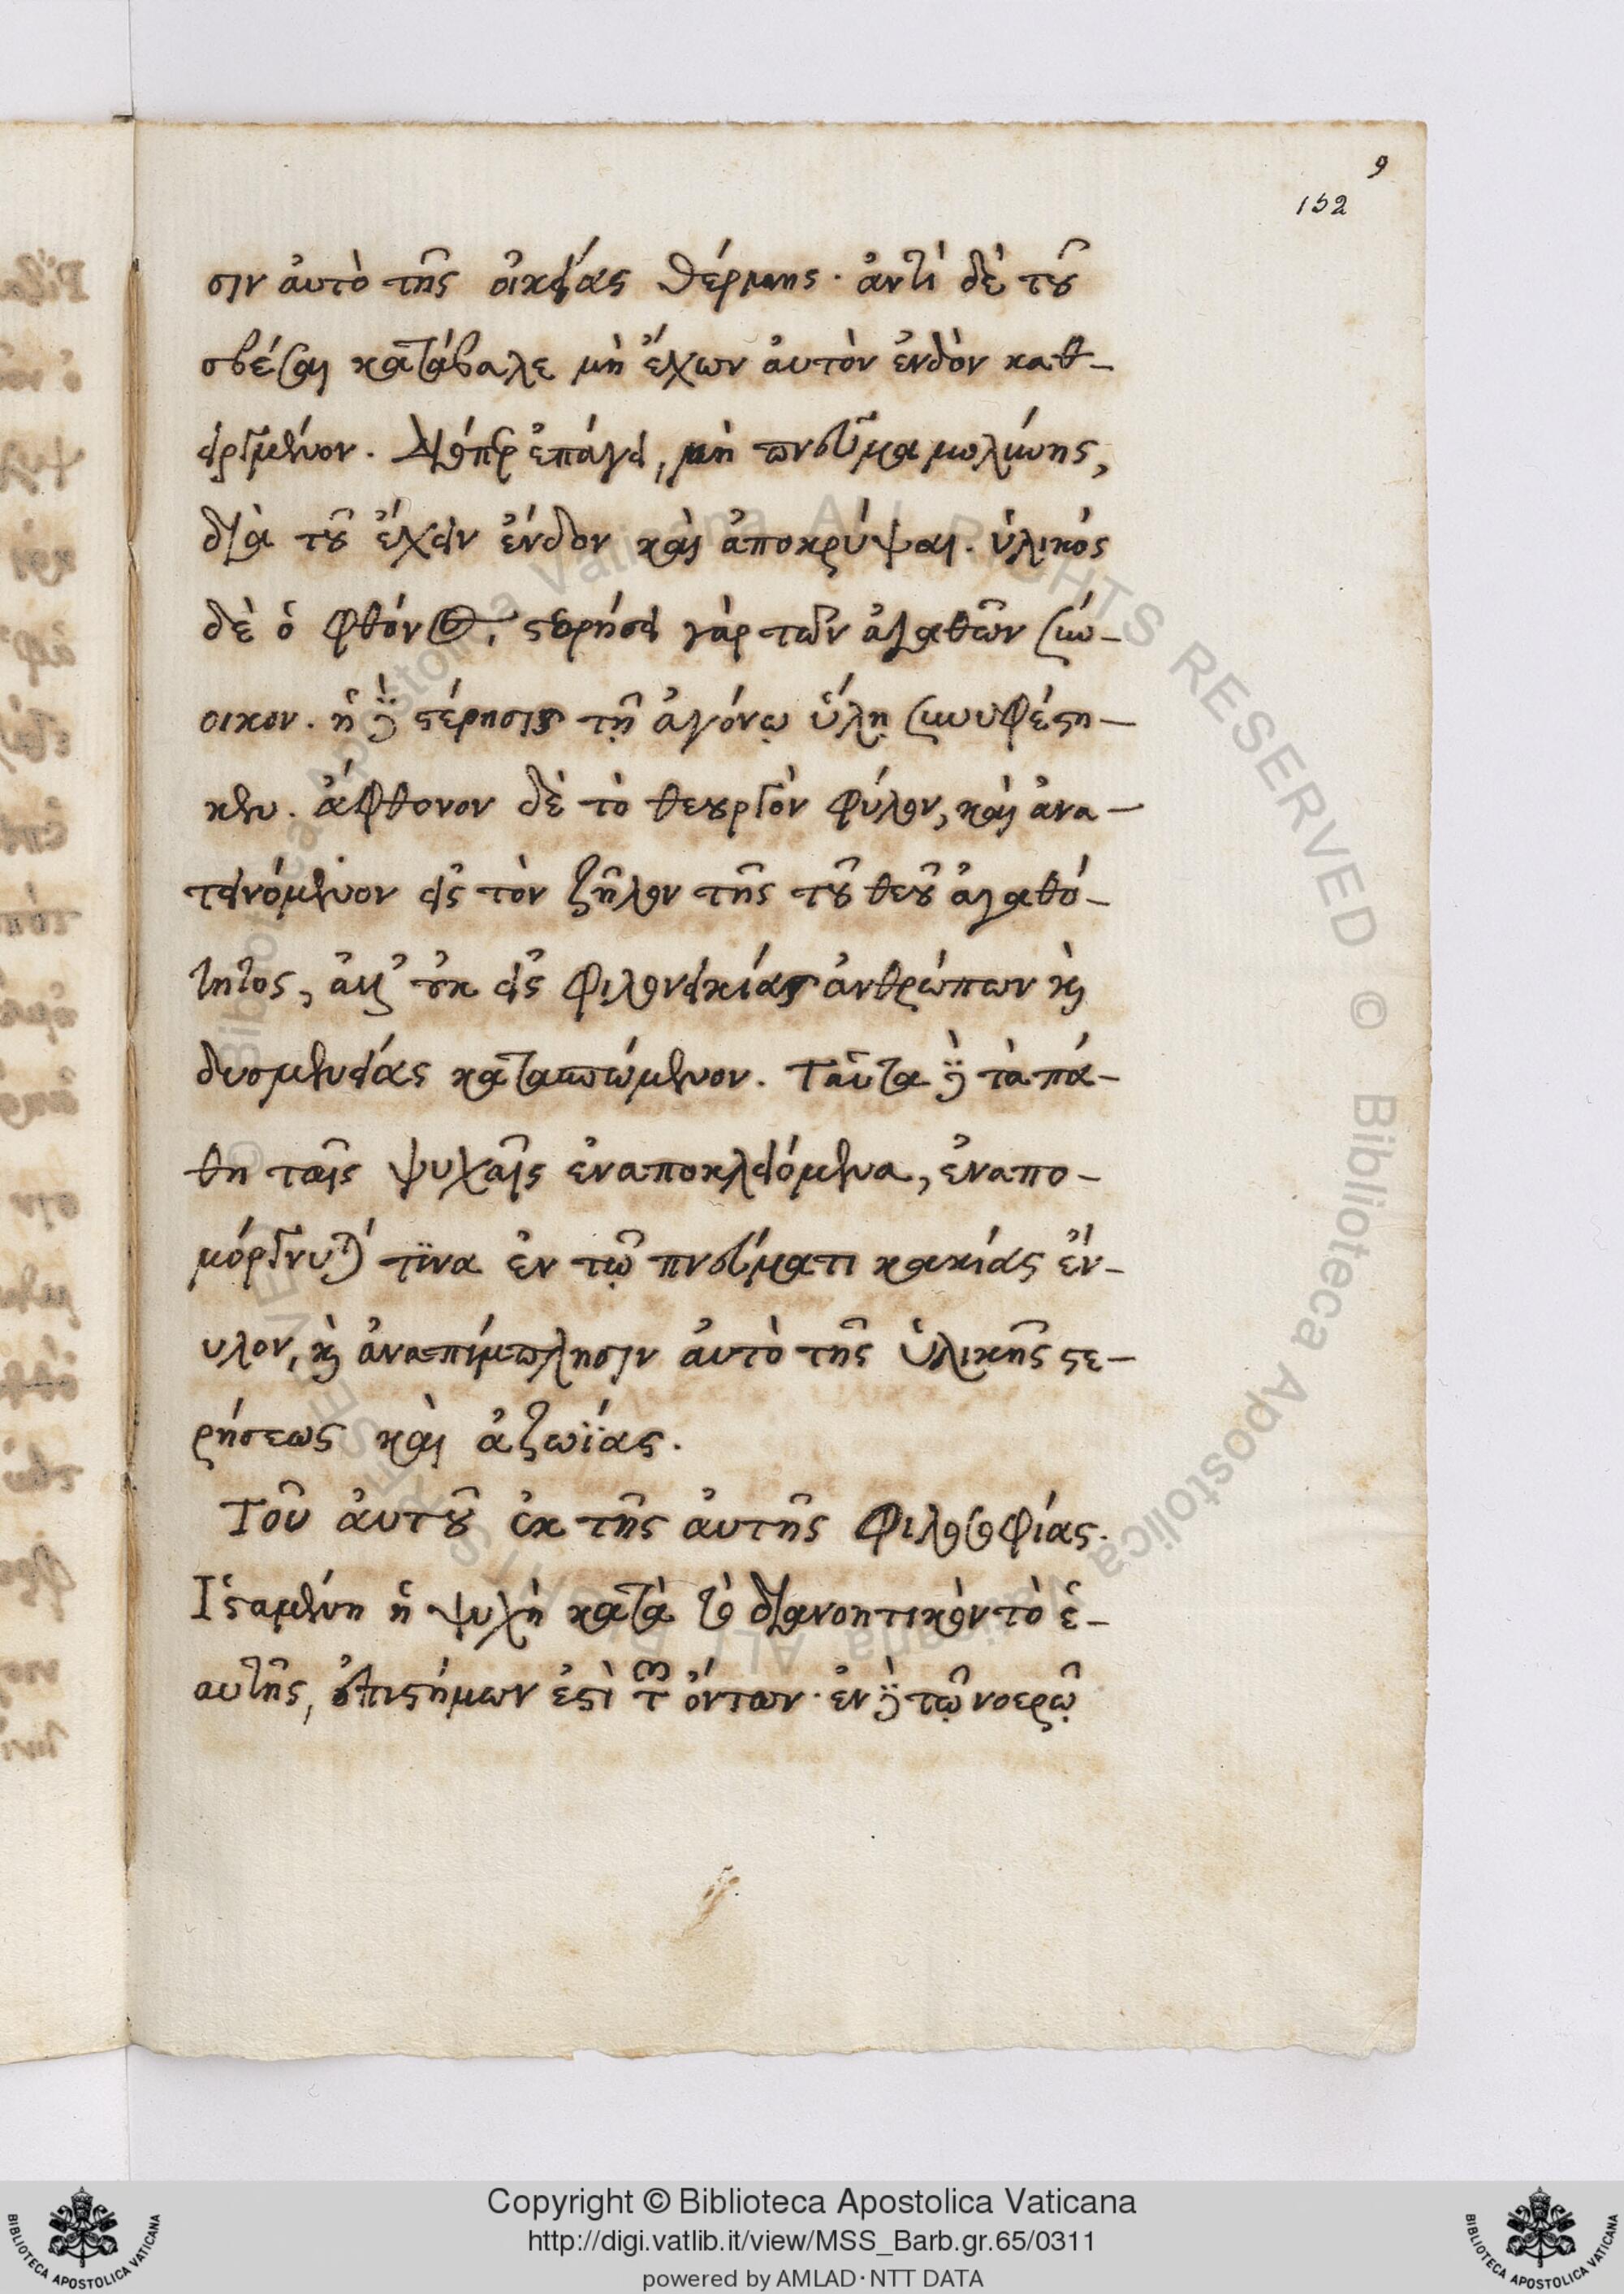 9
152
σιν ἀυτὸ τῆς οἰκείας θέρμης· ἀντὶ δὲ τοῦ
σβέσαι κατάβαλε μὴ ἔχων ἀυτὸν ἐνδὸν καθ-
ειργμένον. Διόπερ ἐπάγει, μὴ πνεῦμα μολύνης,
διὰ τοῦ ἔχειν ἔνδον καὶ ἀποκρύψαι. ὑλικός
δὲ ὁ φθόνος, στερήσει γὰρ τῶν ἀγαθῶν σύν-
οικον. ἡ δὲ στέρησις τῇ ἀγόνῳ ὕλῃ συνυφέστη-
κεν. ἄφθονον δὲ τὸ θεουργὸν φύλον, καὶ ἀνα-
τεινόμενον εἰς τὸν ζῆλον τῆς τοῦ θεοῦ ἀγαθό-
τητος, ἀλλ' οὐκ εἰς φιλονεικίας ἀνθρώπων καὶ
δυσμενείας κατασπώμενον. Ταῦτα δὲ τὰ πά-
θη ταῖς ψυχαῖς ἐναποκλειόμενα, ἐναπο-
μόργνυται τϊνα ἐν τῷ πνεύματι κακίας ἔν-
υλον, καὶ ἀναπίμπλησιν ἀυτὸ τῆς ὑλικῆς στε-
ρήσεως καὶ ἀζωΐας.
Τοῦ ἀυτοῦ ἐκ τῆς ἀυτῆς φιλοσοφίας.
Ἱσταμένη ἡ ψυχὴ κατὰ τὸ διανοητικὸν τὸ ἑ-
αυτῆς, ἐπιστήμων ἐστὶ τῶν ὄντων· ἐν δὲ τῷ νοερῷ
© Biblioteca Apostolica Vaticana ALL RIGHTS RESERVED © Biblioteca Apostolica Vaticana ALL RIGHTS RESERVED
Copyright © Biblioteca Apostolica Vaticana
http://digi.vatlib.it/view/MSS_Barb.gr.65/0311
powered by AMLAD·NTT DATA
BIBLIOTECA APOSTOLICA VATICANA
BIBLIOTECA APOSTOLICA VATICANA